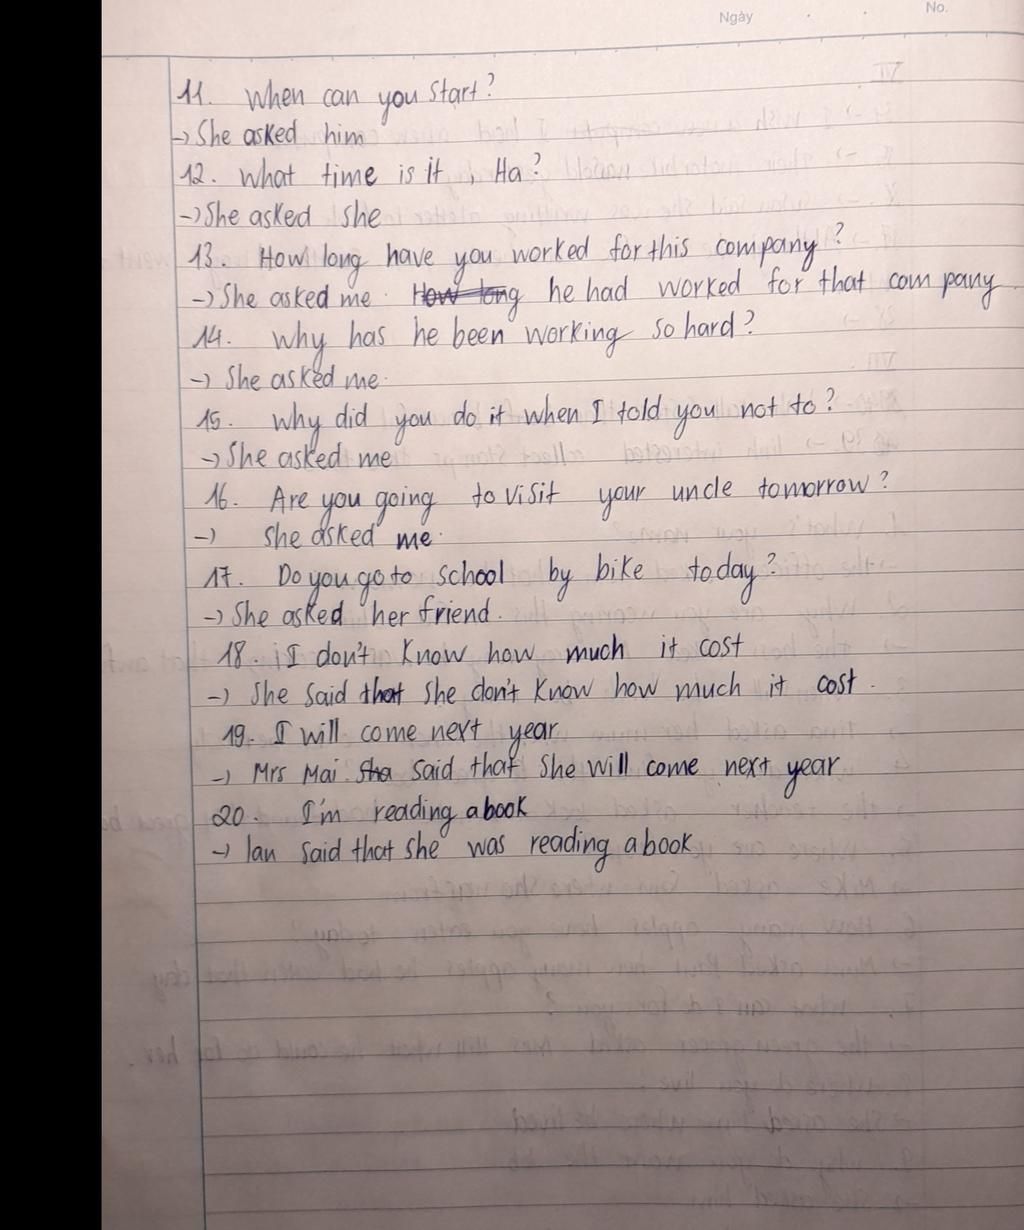 Ngày
No.
11. When can you start?
-> She asked him
12. What time is it, Ha?
-> She asked she
13. How long have you worked for this company?
-> She asked me. How long he had worked for that company.
14. Why has he been working so hard?
-> She asked me.
15. Why did you do it when I told you not to?
-> She asked me
16. Are you going to visit your uncle tomorrow?
-> She asked me.
17. Do you go to school by bike today?
-> She asked her friend.
18. I don't know how much it cost
-> She said that she don't know how much it cost.
19. I will come next year
-> Mrs Mai said that she will come next year
20. I'm reading a book
-> Ian said that she was reading a book